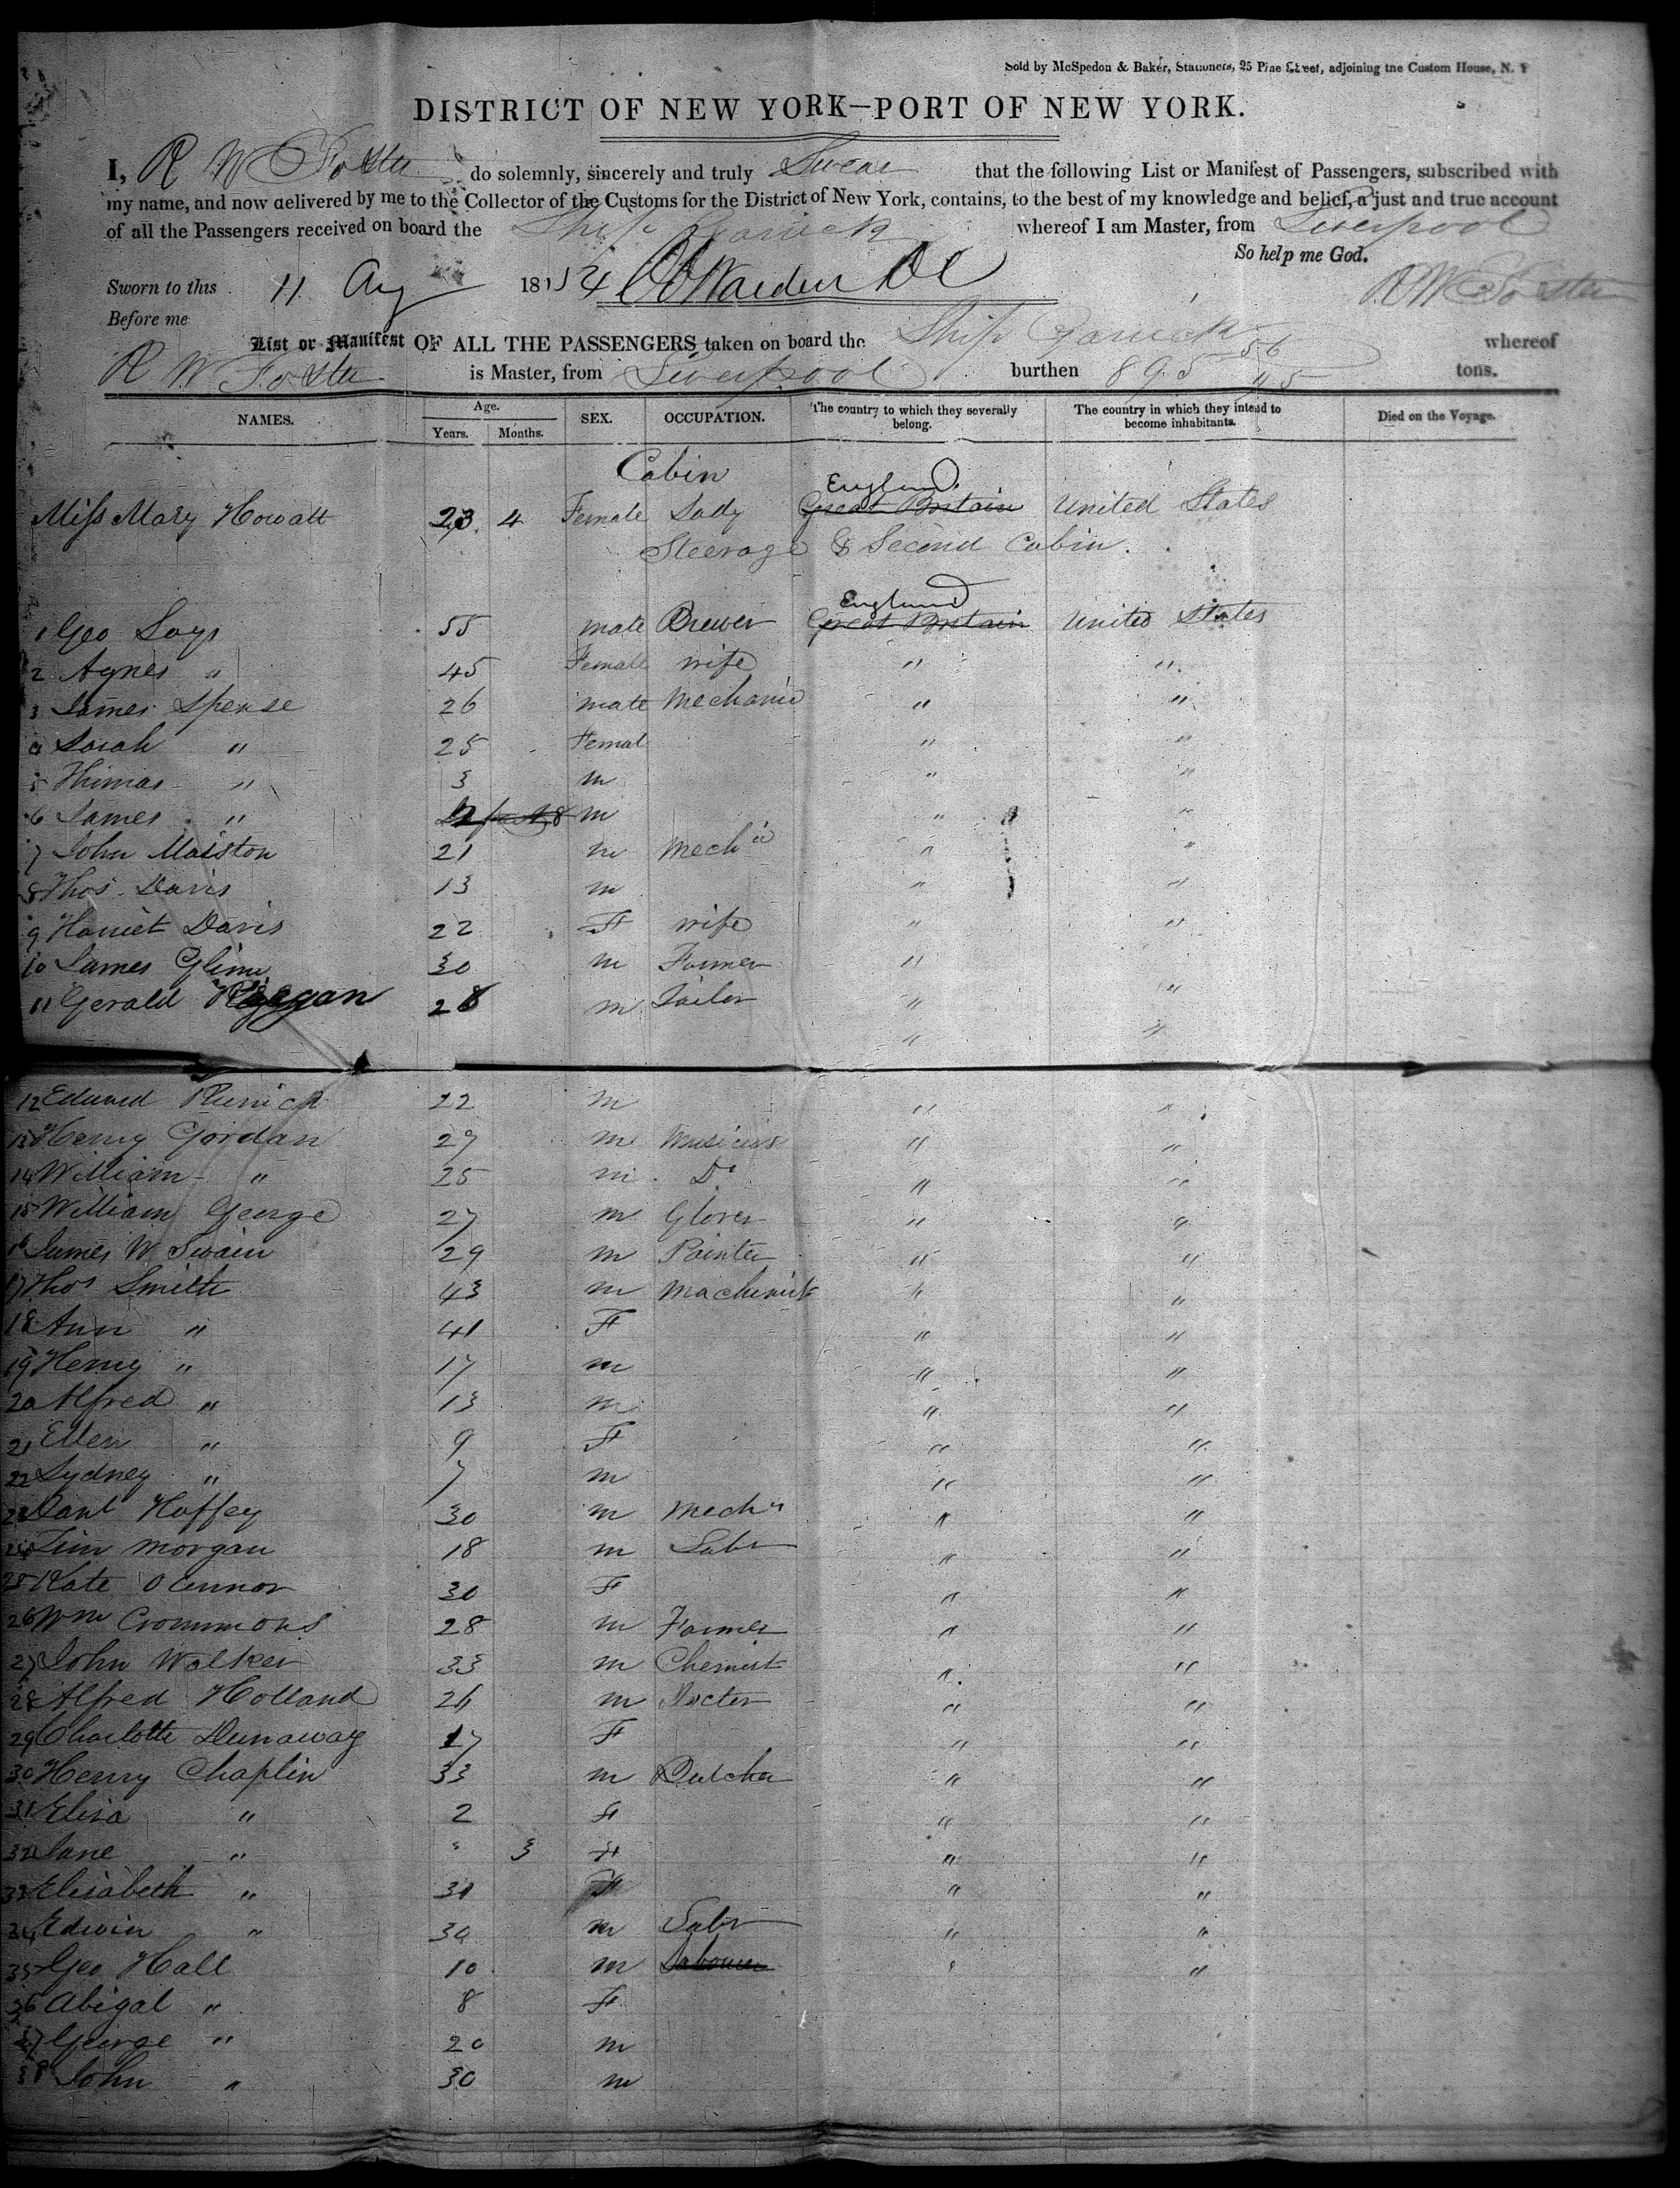 Sold by McSpedon & Baker, Stationers, 25 Pine Street, adjoining the Custom House, N. Y
DISTRICT OF NEW YORK—PORT OF NEW YORK.
I, R W Foster do solemnly, sincerely and truly Swear that the following List or Manifest of Passengers, subscribed with
my name, and now delivered by me to the Collector of the Customs for the District of New York, contains, to the best of my knowledge and belief, a just and true account
of all the Passengers received on board the Ship Garrick whereof I am Master, from Liverpool
So help me God.
Sworn to this 11 Aug 1854 R W Foster
Before me
List or Manifest OF ALL THE PASSENGERS taken on board the Ship Garrick whereof
R W Foster is Master, from Liverpool burthen 895 56/95 tons.
NAMES. Age. Years. Months. SEX. OCCUPATION. The country to which they severally belong. The country in which they intend to become inhabitants. Died on the Voyage.
Cabin
England
Miss Mary Howatt 23 4 Female Lady Great Britain United States
Steerage & Second Cabin.
England
1 Geo Says 55 male Brewer Great Britain United States
2 Agnes " 45 Female wife " "
3 James Spense 26 male Mechanic " "
4 Sarah " 25 Femal " "
5 Thimas " 3 m " "
6 James " 8 m " "
7 John Maiston 21 m Mechic " "
8 Thos Davis 13 m " "
9 Harriet Davis 22 F wife " "
10 James Glinn 30 m Farmer " "
11 Gerald Reagan 28 m Tailor " "
" "
12 Edward 22 m " "
13 Henry Gordan 29 m Musicians " "
14 William " 25 m Do " "
15 William George 27 m Glover " "
16 James W Swain 29 m Painter " "
17 Thos Smith 43 m Machinist " "
18 Ann " 41 F " "
19 Henry " 17 m " "
20 Alfred " 13 m " "
21 Ellen " 9 F " "
22 Sydney " 7 m " "
23 Danl Haffey 30 m Mech " "
24 Tim Morgan 18 m Labr " "
25 Kate OConnor 30 F " "
26 Wm Crommons 28 m Farmer " "
27 John Walker 33 m Chemist " "
28 Alfred Holland 26 m Docter " "
29 Charlotte Dunaway 17 F " "
30 Henry Chaplin 33 m Butcher " "
31 Elisa " 2 F " "
32 Jane " " 3 F " "
33 Elisabeth " 31 F " "
34 Edwin " 30 m Labr " "
35 Geo Hall 10 m Labourer " "
36 Abigal " 8 F
37 George " 20 m
38 John " 30 m